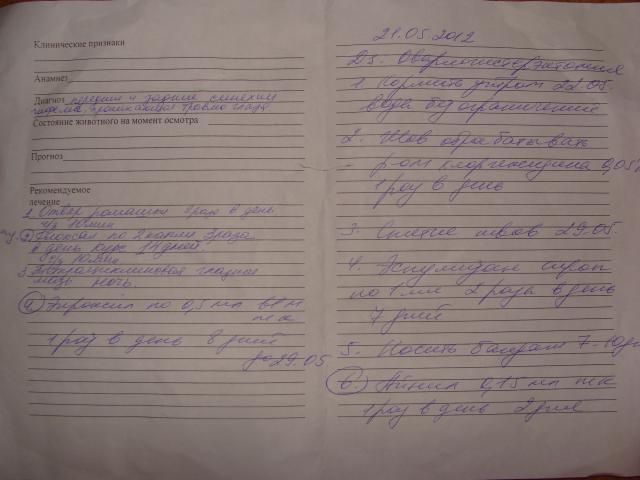 Клинические признаки
Анамнез
Диагноз передние и задние синехии
гифема, проникающая травма глаза.
Состояние животного на момент осмотра
Прогноз
Рекомендуемое
лечение
1. Отвар ромашки 3 раза в день
ч/з 10 мин
2 Флоксал по 2 капли 3 раза
в день курс 14 дней.
ч/з 10 мин
3. Тетрациклиновая глазная
мазь ночь.
4 Энроксил по 0,5 мл в/м
п/к
1 раз в день 8 дней
до 29.05
21.05.2012
Ds. Овариогистерэктомия
1 Кормить утром 22.05.
вода без ограничения
2. Шов обрабатывать
р-ом хлоргексидина 0,05%
1 раз в день
3. Снятие швов 29.05.
4. сироп
по 1 мл 2 раза в день
7 дней
5. Носить бандаж 7-10 дн
6. Айнил 0,15 мл п/к
1 раз в день 2 дня